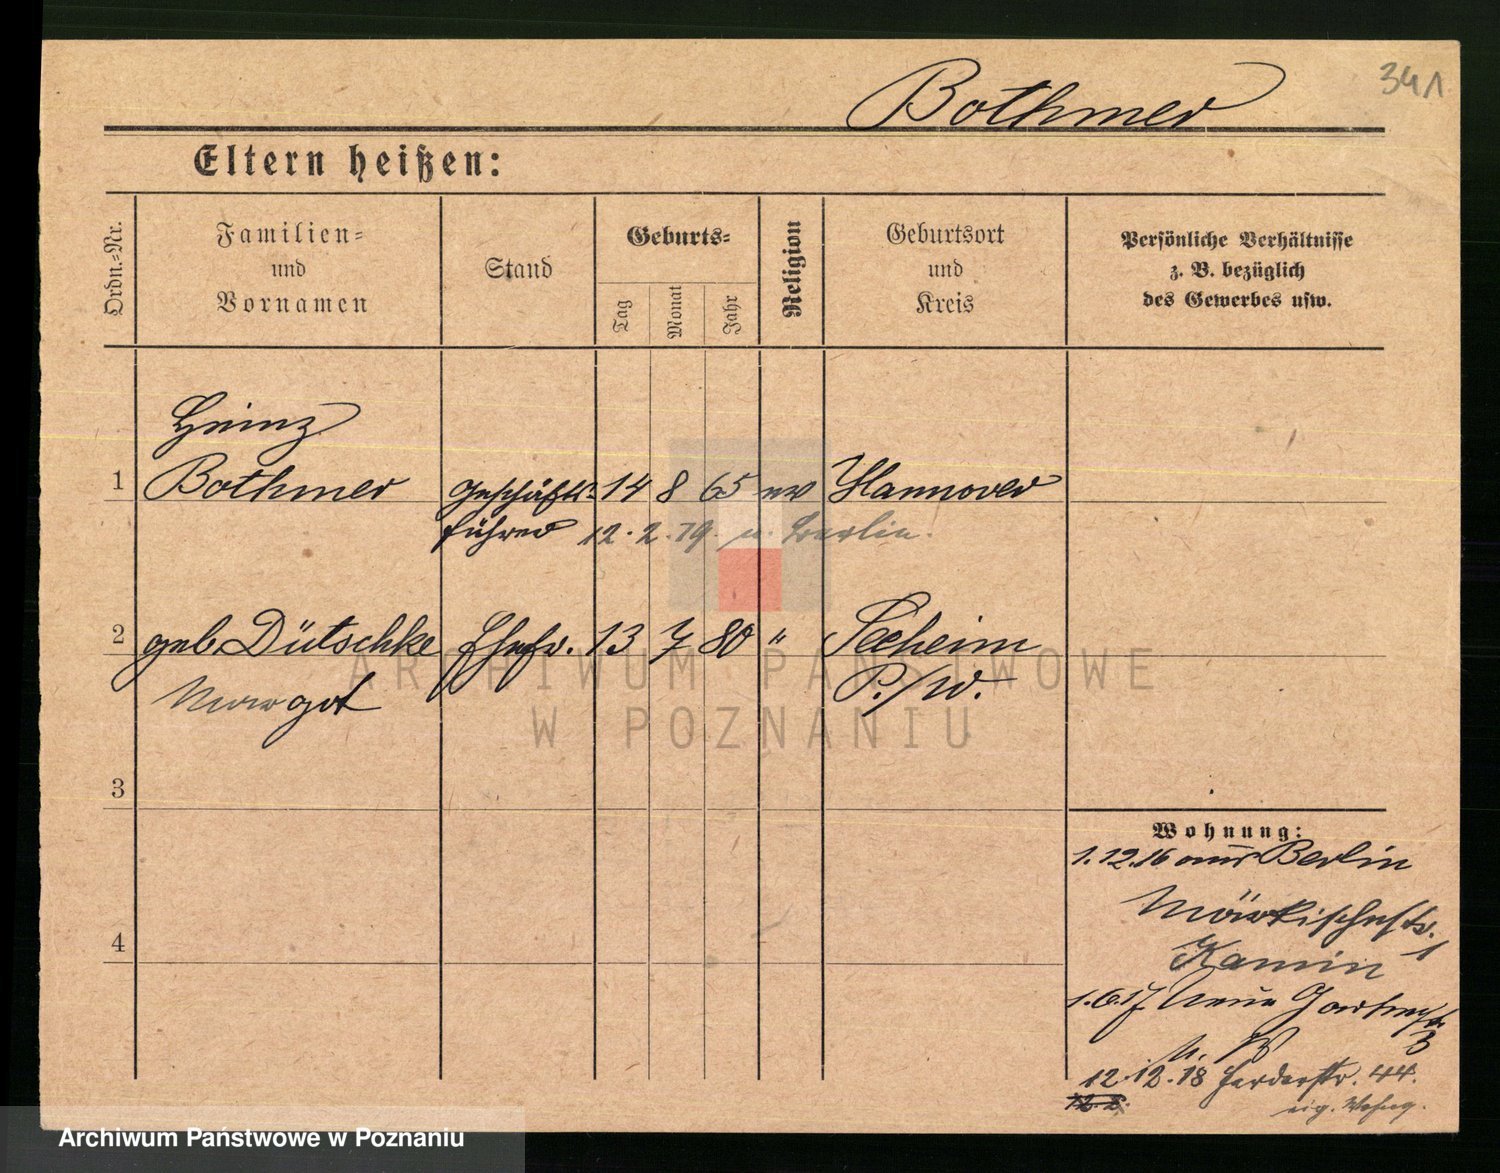 341
Bothmer
Eltern heißen:
Ordn.-Nr.
Familien-
und
Vornamen
Stand
Geburts-
Tag
Monat
Jahr
Religion
Geburtsort
und
Kreis
Persönliche Verhältnisse
z. B. bezüglich
des Gewerbes usw.
Heinz
1 Bothmer Geschäfts- 14 8 65 ev Hannover
führer 12. 2. 19. n. Berlin.
2 geb. Dütschke Ehefr. 13 7 80 " Seeheim
Margot P./W.
3
4
Wohnung:
1.12.16 aus Berlin
Märkischestr. 1
Kamin
1.6.17 Neue Gartenstr
3
12.12.18 Herderstr. 44.
12.2.
eig. Wohng.
ARCHIWUM PAŃSTWOWE
W POZNANIU
Archiwum Państwowe w Poznaniu